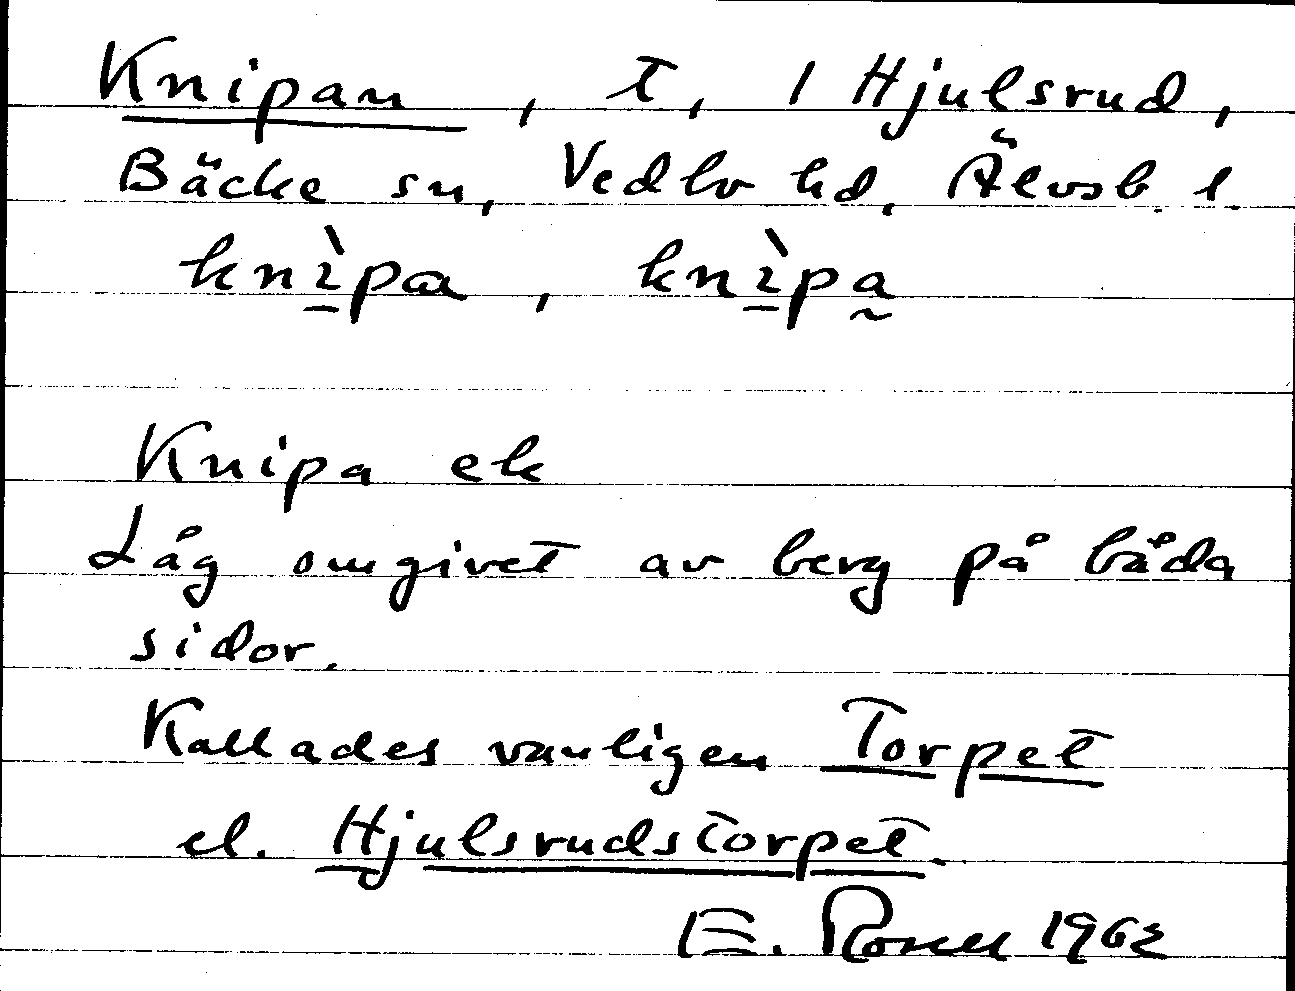 Knipan, t, / Hjulsrud,
Bäcke sn, Vedbo hd, Älvsb. l.
knìpa, knìpa
Knipa ek
Låg omgivet av berg på båda
sidor.
Kallades vanligen Torpet
el. Hjulsrudstorpet.
E. Rosell 1962